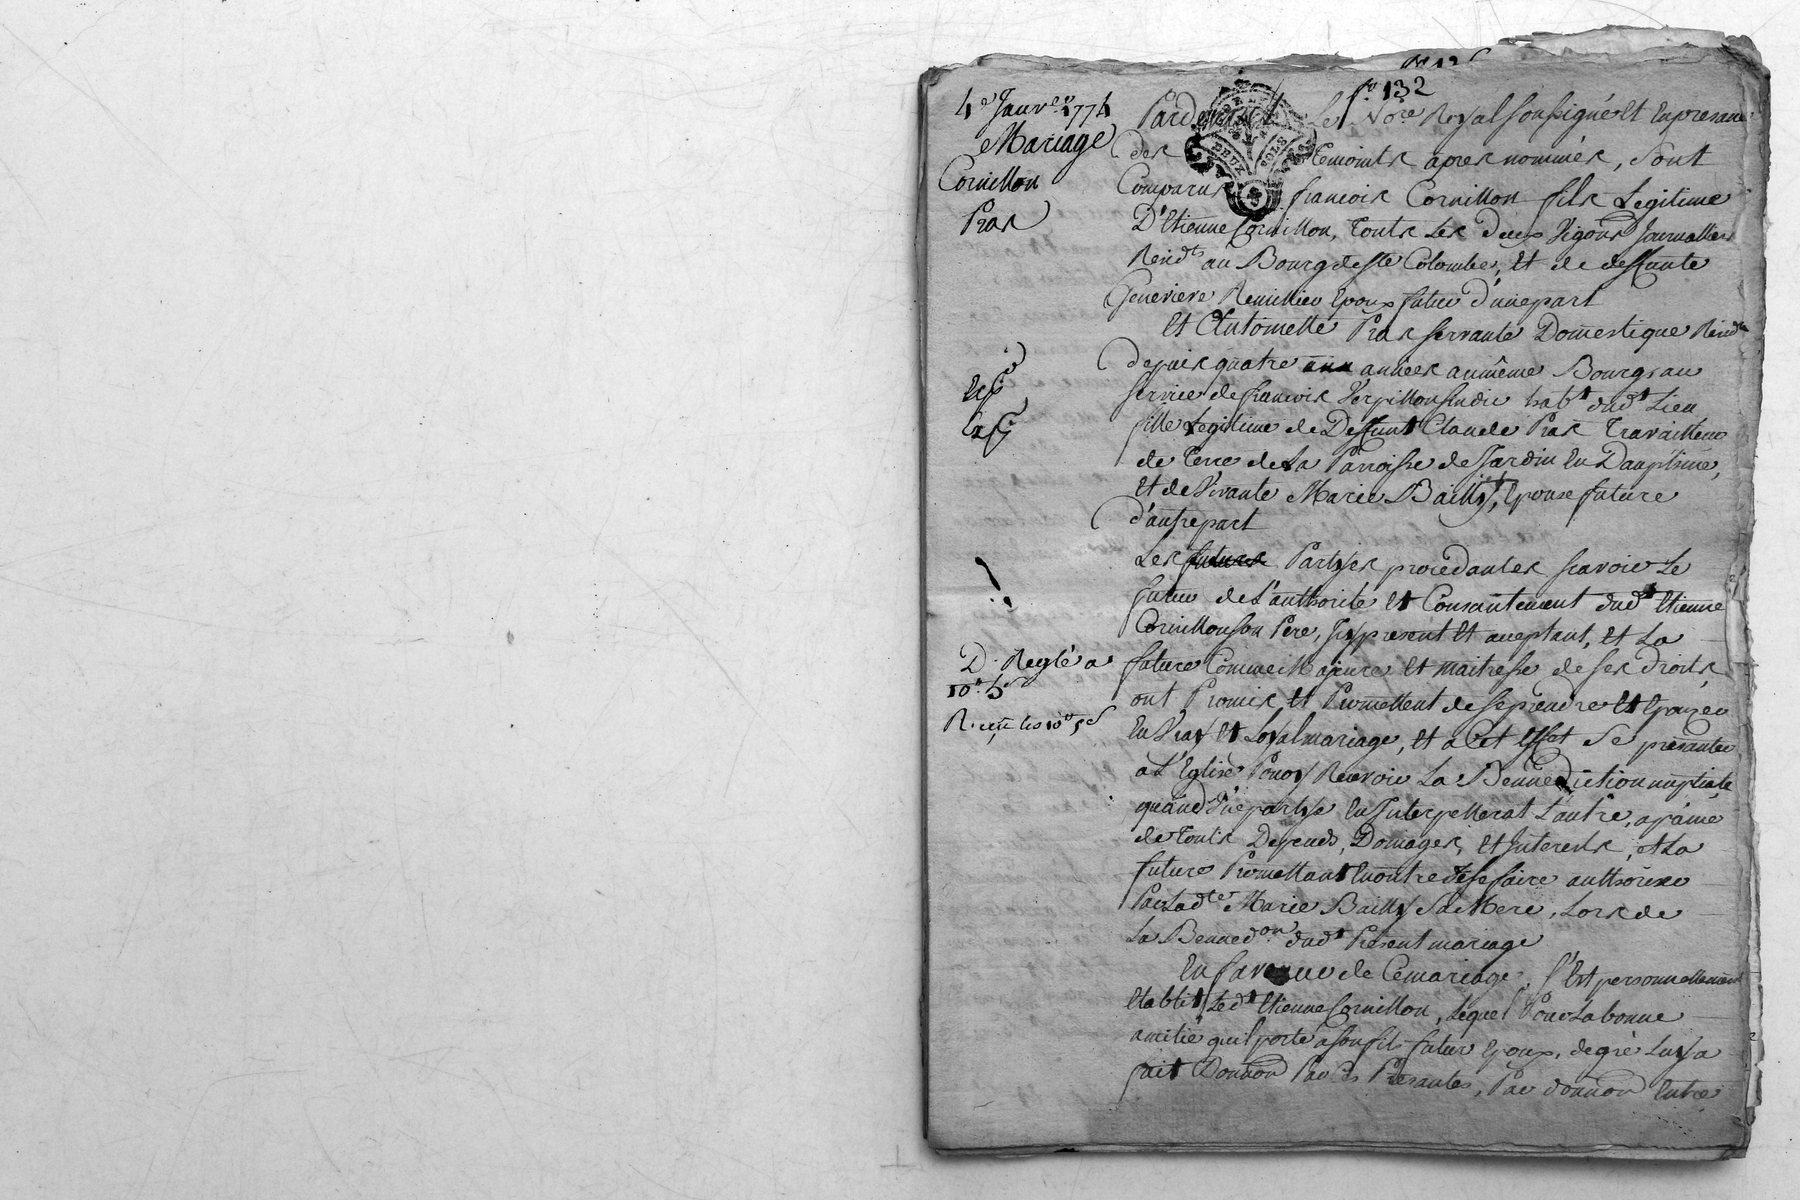 fo. 132
4e Janvier 1774
Mariage
Cornillon
Pras
Expé
D. Reglé a
10# 5s
Pardevant Le Nore Royal soussigné et En presance
des Temoints apres nommés, sont
Comparus francois Cornillon fils Legitime
D'Etienne Cornillon, touts Les deux Vigons Journalliers
Reindts au Bourg de Ste Colombe, Et de deffunte
Genevieve Remillieu Epoux futur d'une part
Et Antoinette Pras servante Domestique Reindte
depuis quatre années au même Bourg au
service de francois Verpillon sindic habt dudt Lieu
fille Legitime de Deffunt Claude Pras Travailleur
de Terre de La Parroisse de Jardin En Dauphine,
Et de Vivante Marie Bailly, Epouse future
d'autre part
Les futurs Partyes procedantes scavoir Le
futur de L'authorité Et Consantement dudt Etienne
Cornillon son Pere, Jcy present Et aceptant, et La
future Comme Majeure Et maitresse de ses droits
ont Promis et Promettent de se prendre Et Epouzer
En Vray Et Loyal mariage, Et a Cet Effet se presanter
a L'Eglise Pour y Recevoir La Bennediction nuptiale
quand L'une partye En Interpellerat L'autre, a paine
de touts Depends, Domages, Et Interests, et La
future Promettant En outre de se faire authorizer
Par Ladte Marie Bailly sa Mere, Lors de
La Bennedon dudt Present mariage
En faveur de Ce mariage, s'Est personnellement
Etablit Ledt Etienne Cornillon, Lequel Pour La bonne
amitie qu'il porte a son fils futur Epoux, de gré Luy a
fait Donnon Par Ces Presantes, Par donnon Entre